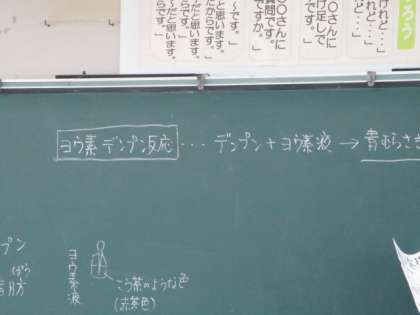 ろう
けれど…
れど…」
〇〇さんに
け足して
です。」
〇〇さんに
質問です。
ですか。」
～です。
だからです。」
だと思います。
だと思います。
～だと思います。
からです。」
ヨウ素デンプン反応 ・・・ デンプン+ヨウ素液 → 青むらさき
プン
ヨウ素液
こう茶のような色
(赤茶色)